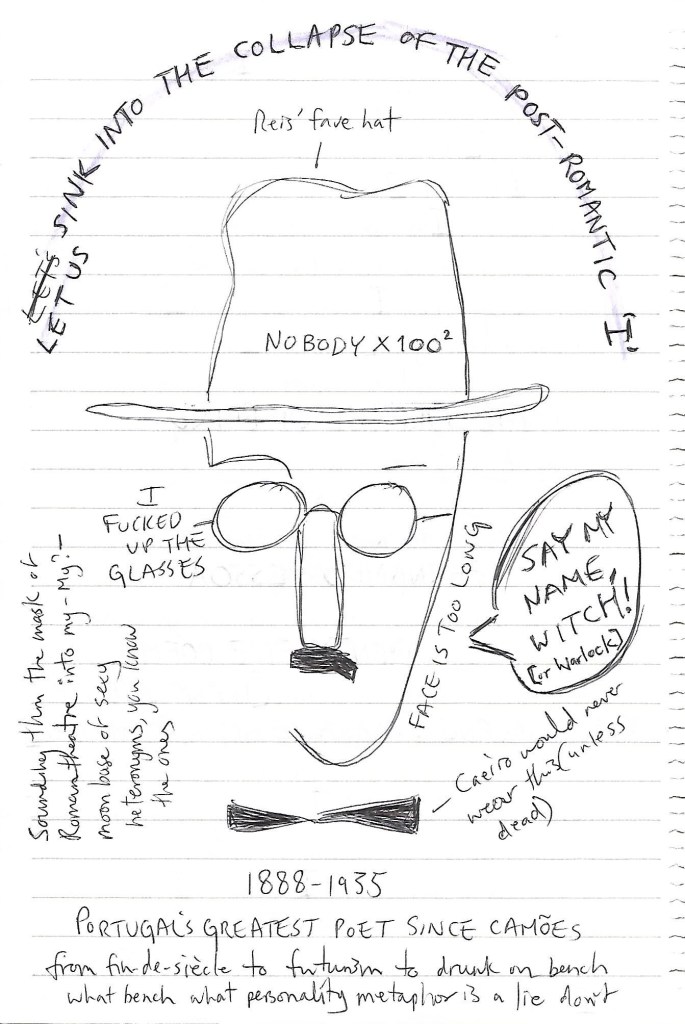 LET'S
LET US SINK INTO THE COLLAPSE OF THE POST-ROMANTIC 'I'
Reis' fave hat
NOBODY X 100²
I
FUCKED
UP THE
GLASSES
FACE IS TOO LONG
SAY MY
NAME,
WITCH!
[or Warlock]
Sounding thru the mask of
Roman theatre into my - My? -
moon base of sexy
heteronyms, you know
the ones
Caeiro would never
wear this (unless
dead)
1888-1935
PORTUGAL'S GREATEST POET SINCE CAMÕES
from fin-de-siècle to futurism to drunk on bench
what bench what personality metaphor is a lie don't